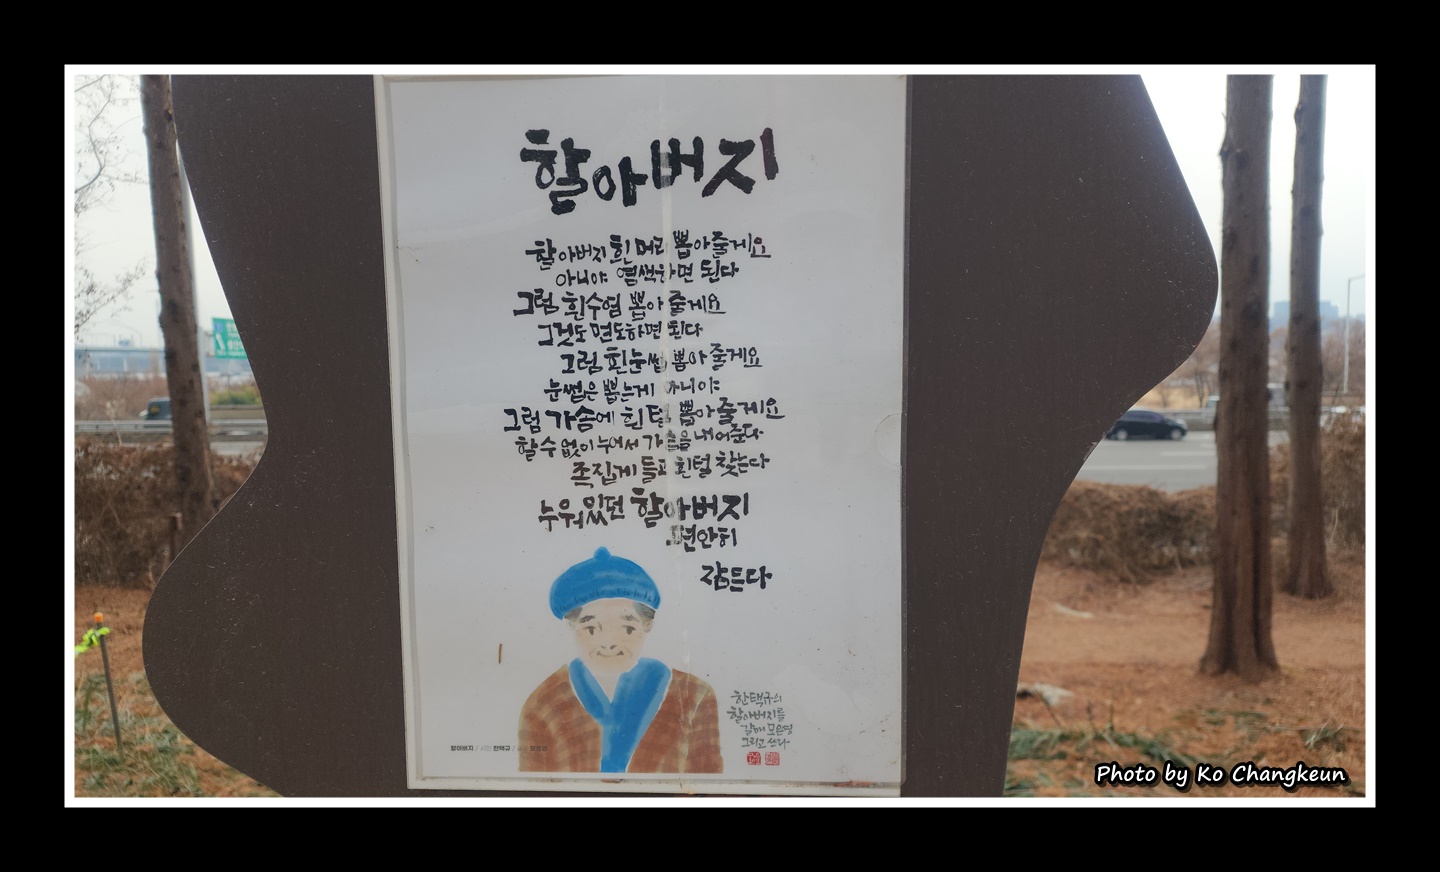 할아버지
할아버지 흰 머리 뽑아 줄게요
아니야 염색하면 된다
그럼 흰수염 뽑아 줄게요
그것도 면도하면 된다
그럼 흰눈썹 뽑아 줄게요
눈썹은 뽑는게 아니야
그럼 가슴에 흰털 뽑아 줄게요
할 수 없이 누어서 가슴을 내어준다
족집게 들고 흰털 찾는다
누워있던 할아버지
편안히
잠든다
한택규의
할아버지를
갈매 모은영
그리고 쓰다
할아버지 / 시인 한택규 /
Photo by Ko Changkeun